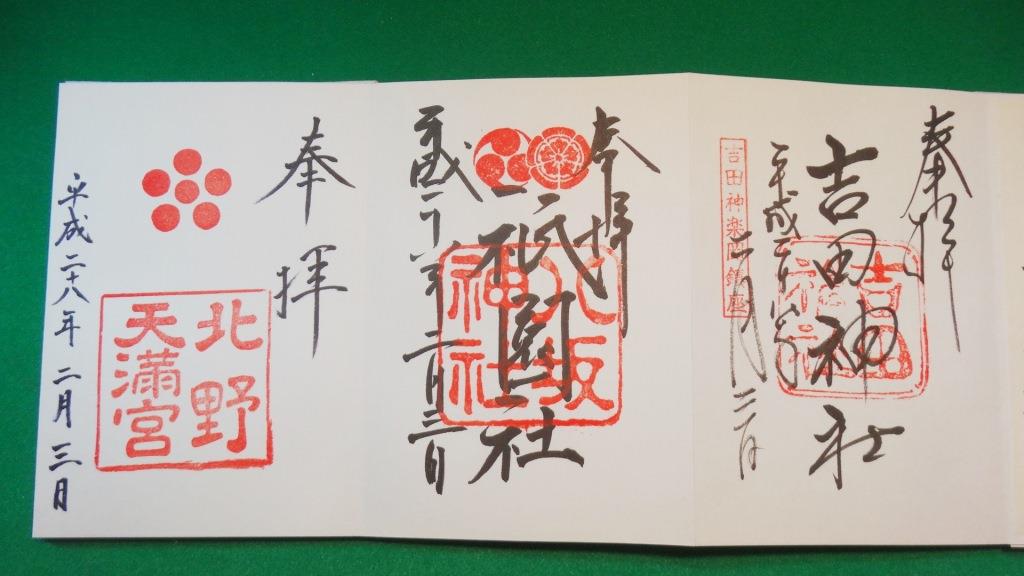 奉拝
吉田神社
吉田神社
平成二十八年
二月三日
吉田神楽岡鎮座
奉拝
祇園社
八坂神社
平成二十八年
二月三日
奉拝
北野
天満宮
平成二十八年 二月三日